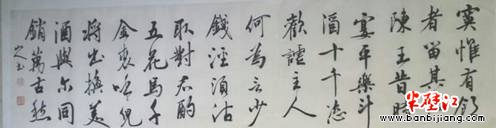 寞惟有飲
者留其
陳王昔時
宴平樂斗
酒十千恣
歡謔主人
何為言少
錢徑須沽
取對君酌
五花馬千
金裘呼兒
將出換美
酒與尔同
銷萬古愁
半壁江
www.banbijiang.com